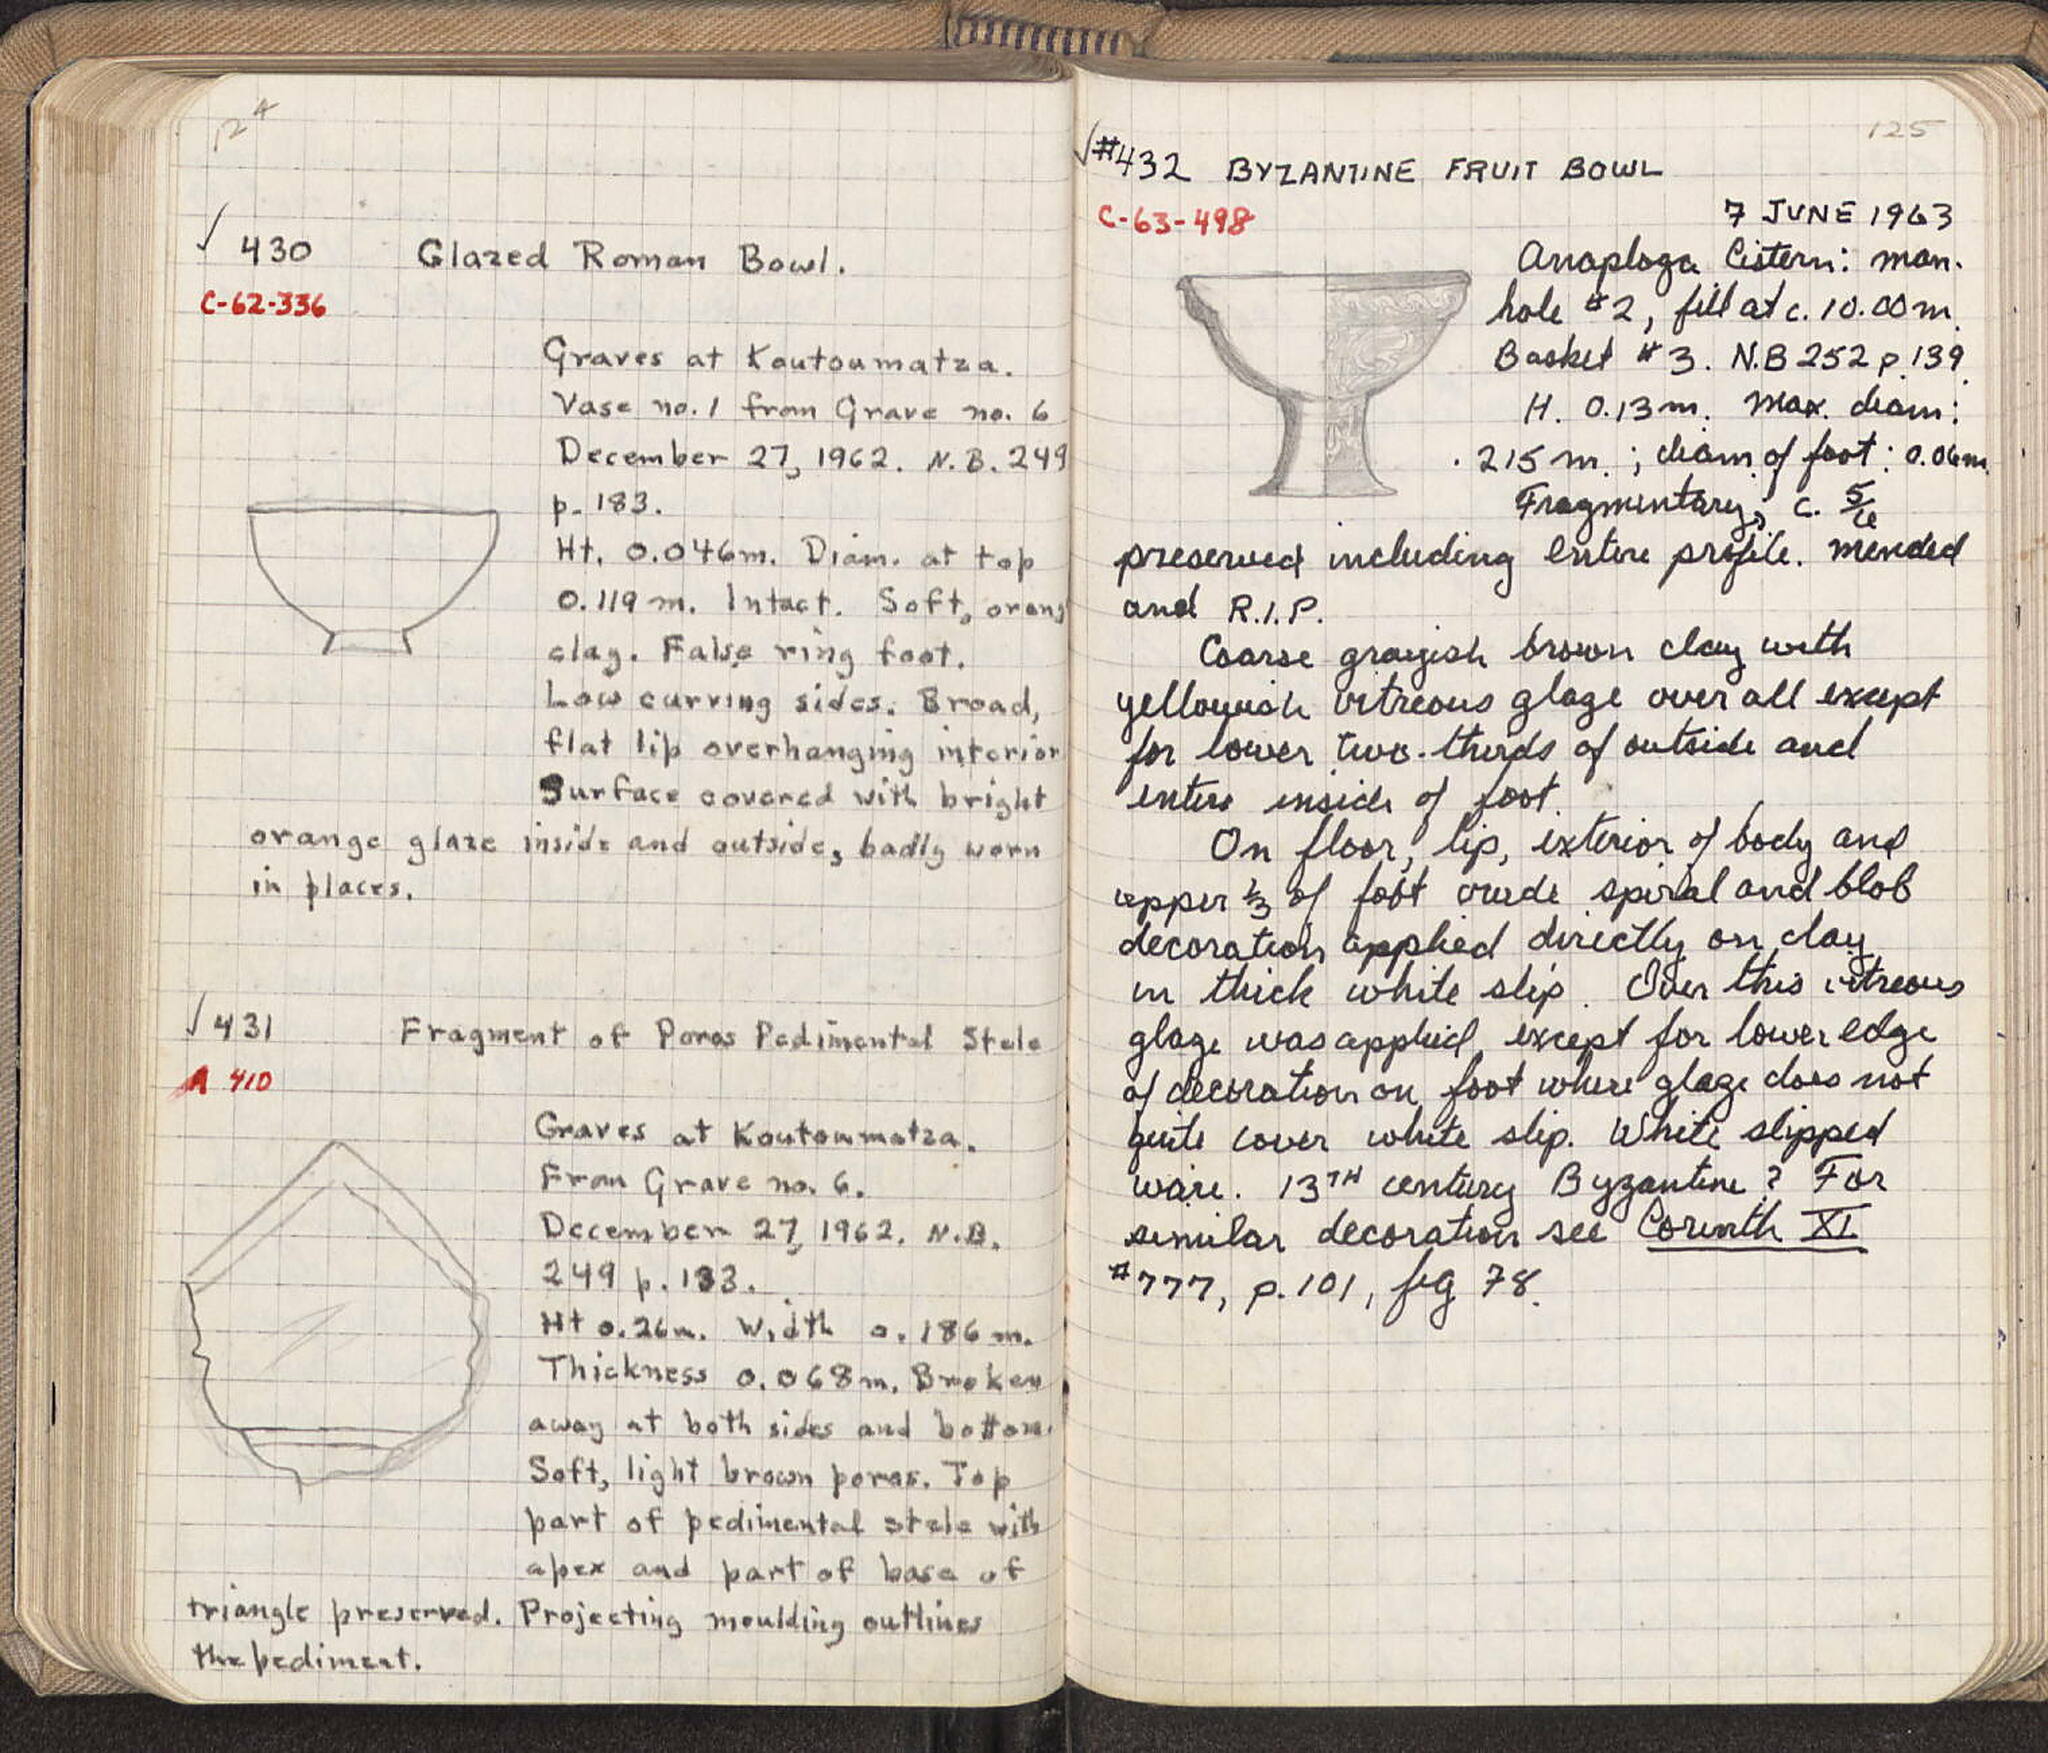 124
√ 430 Glazed Roman Bowl.
C-62-336
Graves at Koutoumatza.
Vase no. 1 from Grave no. 6
December 27, 1962. N.B. 249
p. 183.
Ht. 0.046m. Diam. at top
0.119 m. Intact. Soft, orang
clay. False ring foot.
Low curving sides. Broad,
flat lip overhanging interior
Surface covered with bright
orange glaze inside and outside, badly worn
in places.
√ 431 Fragment of Poros Pedimental Stele
A 410
Graves at Koutoumatza.
From Grave no. 6.
December 27, 1962. N.B.
249 p. 183.
Ht 0.26m. Width 0.186 m.
Thickness 0.068m. Broken
away at both sides and bottom.
Soft, light brown poros. Top
part of pedimental stele with
apex and part of base of
triangle preserved. Projecting moulding outlines
the pediment.
125
√ #432 BYZANTINE FRUIT BOWL
C-63-498
7 JUNE 1963
Anaploga Cistern: man-
hole #2, fill at c. 10.00 m.
Basket #3. N.B 252 p. 139.
H. 0.13 m. Max. diam:
.215 m.; diam of foot: 0.06m.
Fragmentary; c. 5/6
preserved including entire profile. Mended
and R.I.P.
Coarse grayish brown clay with
yellowish vitreous glaze over all except
for lower two-thirds of outside and
entire inside of foot.
On floor, lip, exterior of body and
upper 1/3 of foot crude spiral and blob
decoration applied directly on clay
in thick white slip. Over this vitreous
glaze was applied except for lower edge
of decoration on foot where glaze does not
quite cover white slip. White slipped
ware. 13TH century Byzantine? For
similar decoration see Corinth XI
#777, p. 101, fig 78.